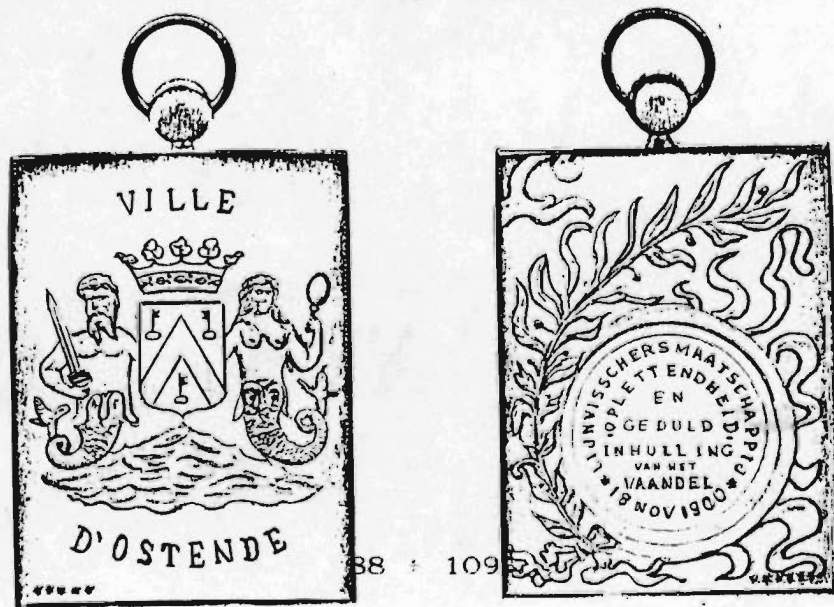 VILLE
D'OSTENDE
88 + 109
LIJNVISSCHERSMAATSCHAPPIJ
"OPLETTENDHEID"
EN
GEDULD
INHULLING
VAN HET
VAANDEL
18 NOV 1900